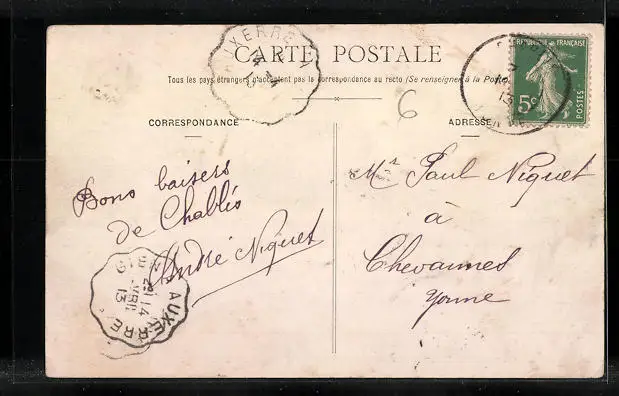 CARTE POSTALE
Tous les pays étrangers n'acceptent pas la correspondance au recto (Se renseigner à la Poste)
RÉPUBLIQUE FRANÇAISE
5c
POSTES
6
CORRESPONDANCE
ADRESSE
Bons baisers
de Chablis
André Niquet
Mr Paul Niquet
à
Chevannes
Yonne
AUXERRE
14
13
AUXERRE
14
13